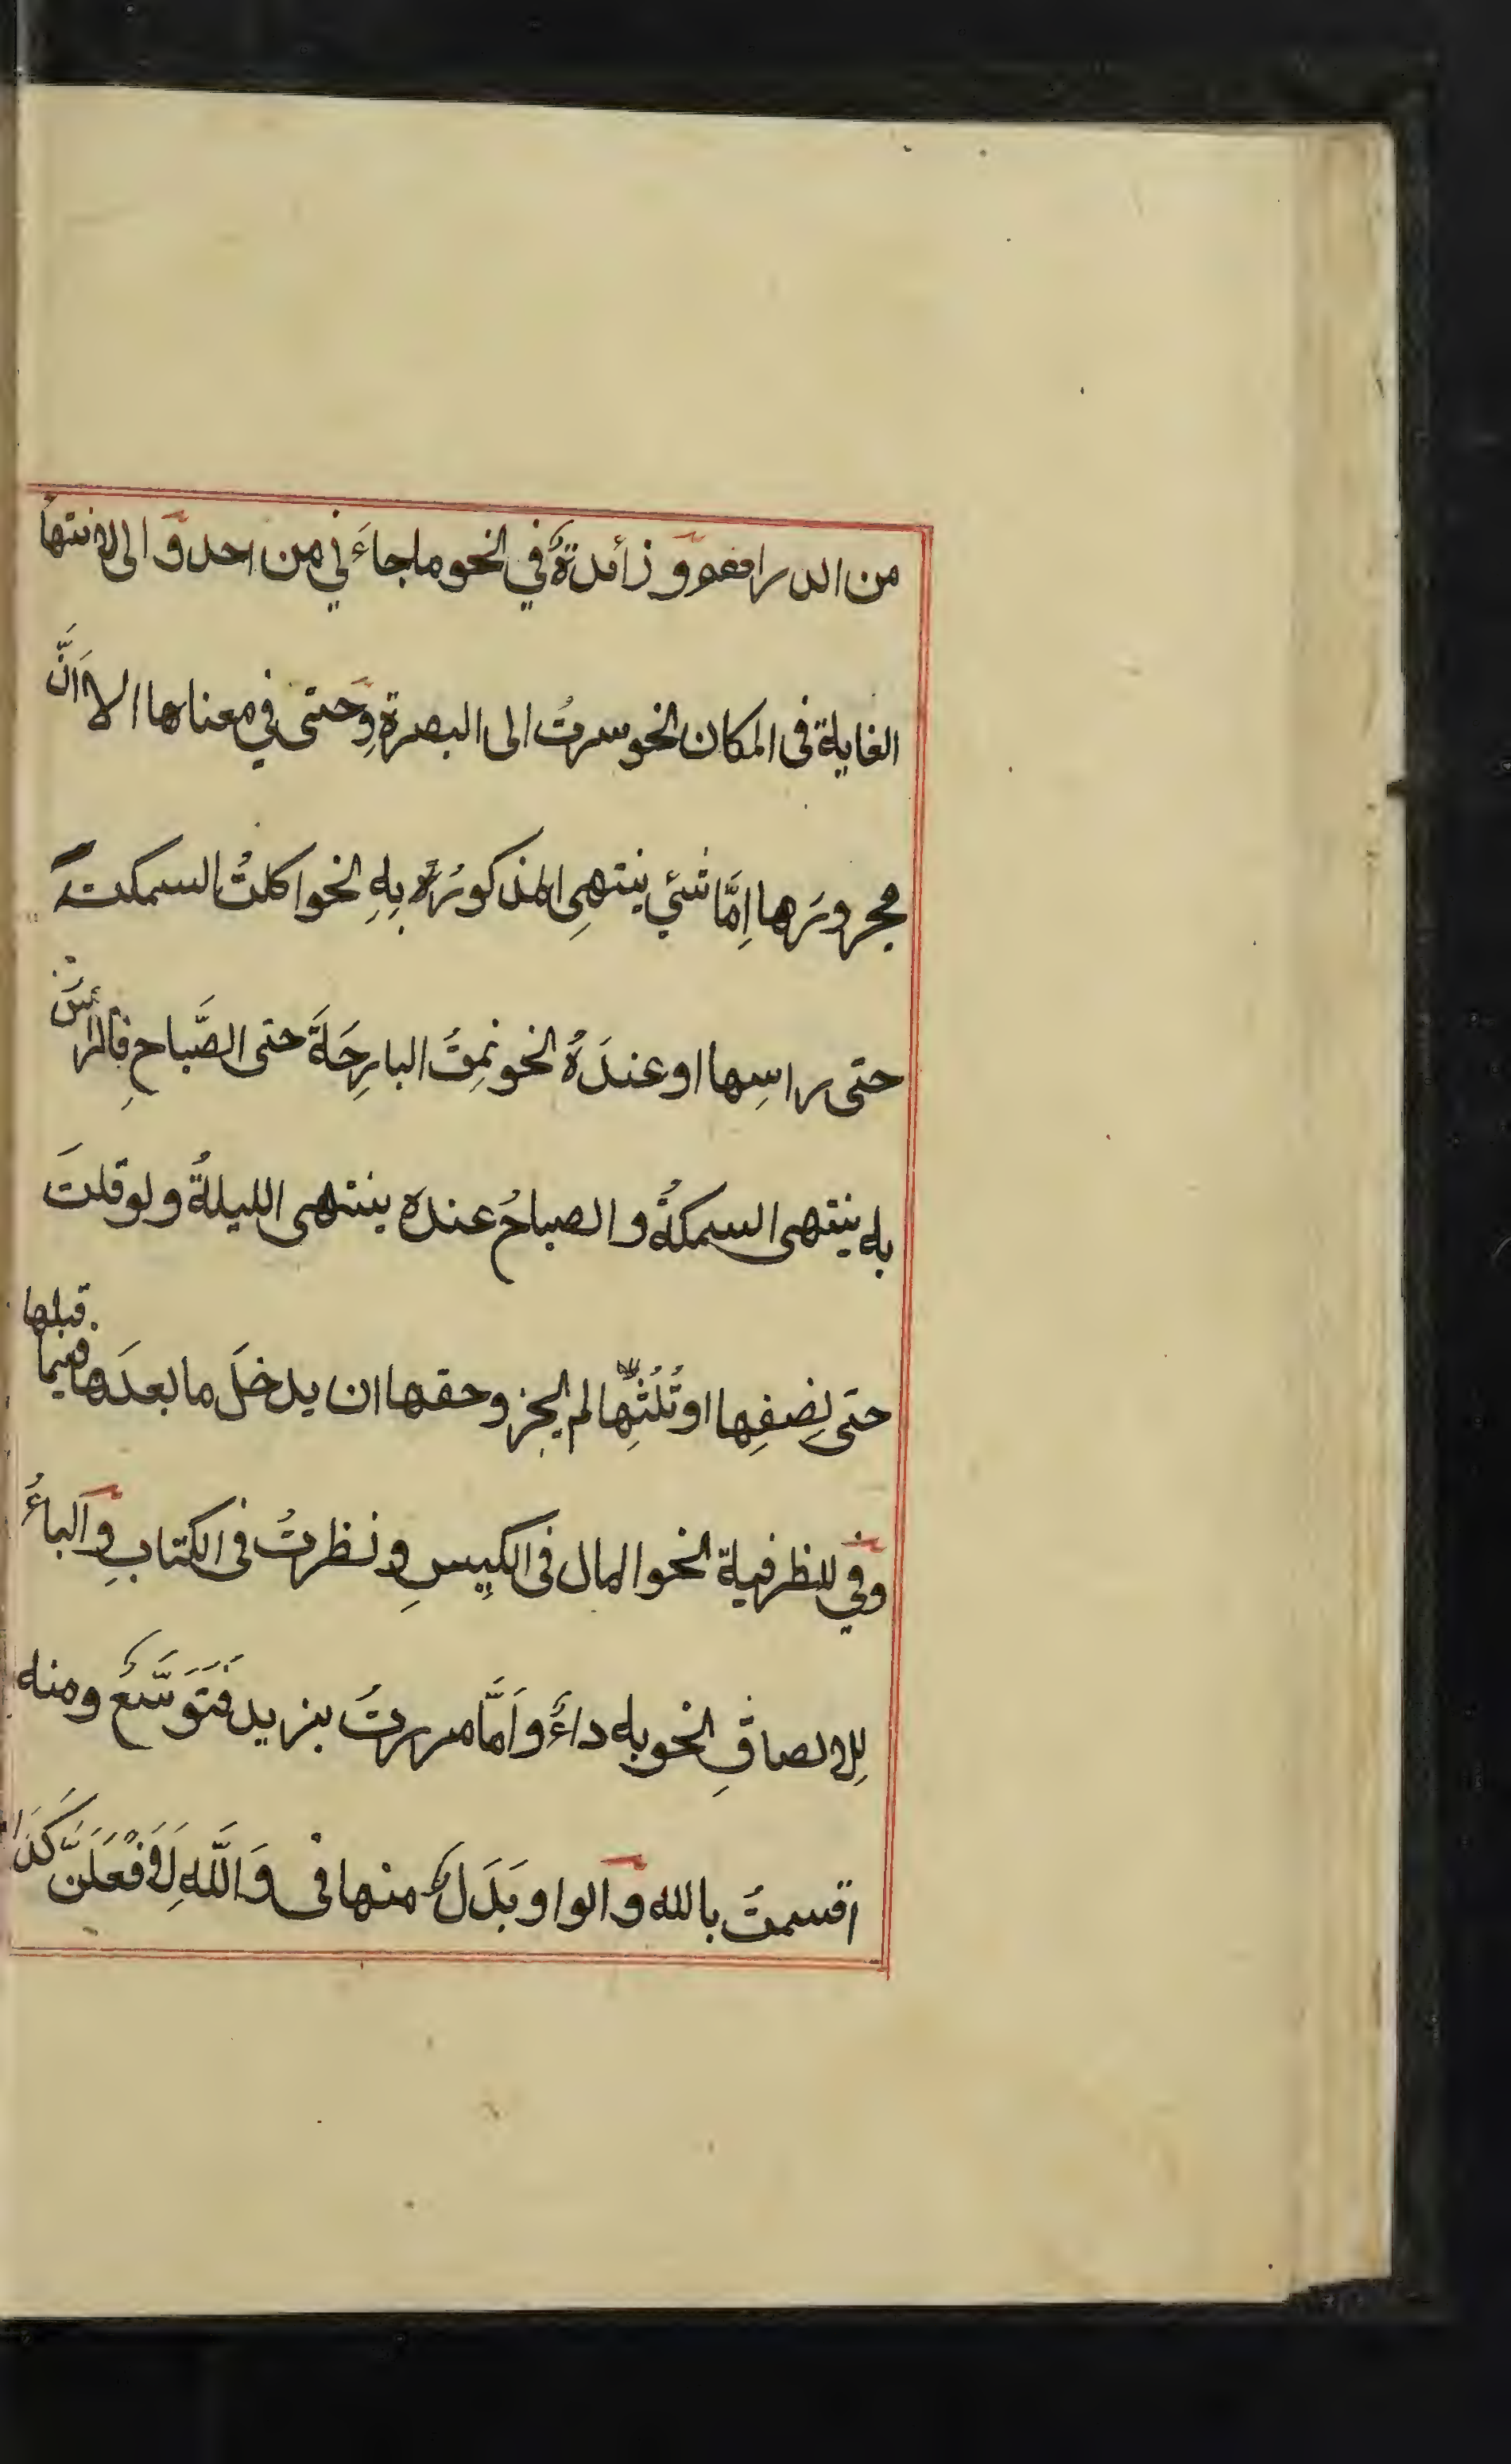 من الدراهم و زائدةٌ في نحو ما جاءَني من احد وَ الى لانتهاء
الغاية فى المكان نحو سرتُ الى البصرةِ وَحتى في معناها الا اَنَّ
مجرورَها اِمَّا شئي ينتهِى المذكورُ بهِ نحو اكلتُ السمكةَ
حتى راسِها او عندَهُ نحو نمِتُ البارِحَةَ حتى الصَّباحِ فالرأسُ
به ينتهى السمكةُ و الصباحُ عنده ينتهى الليلةُ و لو قلتَ
حتى نِصفِها او ثُلُثِها لم يجز و حقها ان يدخلَ ما بعدَها فيما قبلها
وَفي للظرفية نحو المال فى الكِيسِ و نظرتُ فى الكتابِ وَ الباءُ
لِلالصاقِ نحو به داءٌ و اَمَّا مررتُ بزيد فَتَوَسَّعٌ و منه
اقسمتُ بالله وَ الواو بَدَلٌ منها فى وَاللَّهِ لَاَفْعَلَنَّ كَذَا